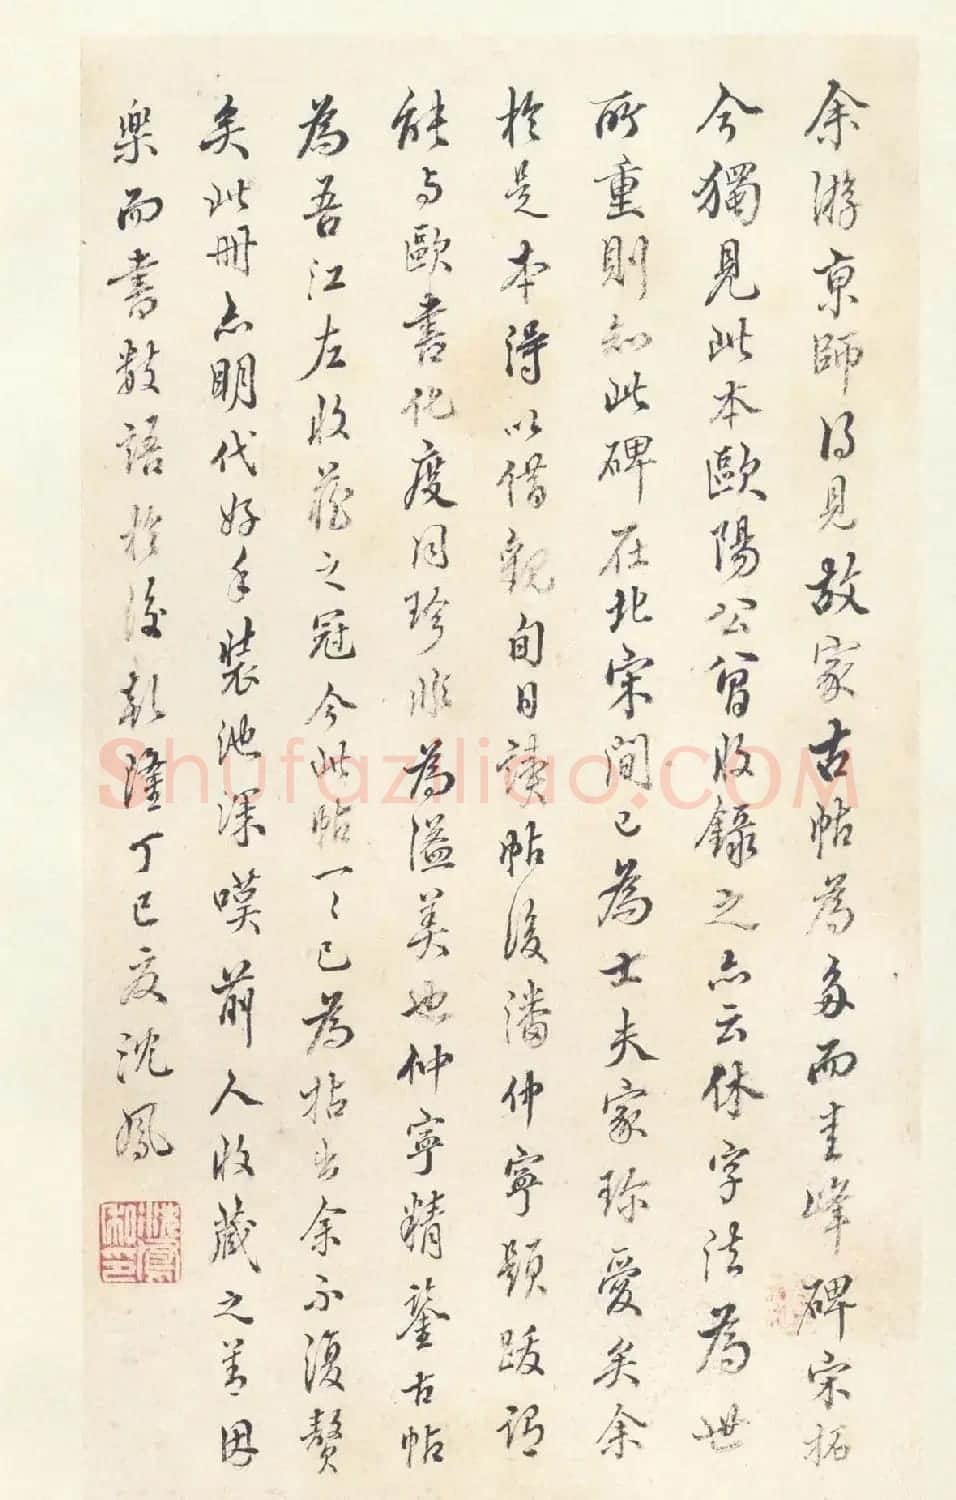 余游京師得見故家古帖為多而圭峰碑宋拓
今獨見此本歐陽公曾收錄之亦云休字法為世
所重則知此碑在北宋間已為士夫家珎愛矣余
於是本得以借觀旬日讀帖後潘仲寧題跋謂
能與歐書化度同珍非為溢美也仲寧精鑒古帖
為吾江左收藏之冠今此帖一〻已為拈出余不復贅
矣此冊亦明代好手裝池深嘆前人收藏之善因
樂而書數語於後乾隆丁巳夏沈鳳
沈鳳私印
Shufaziliao.COM